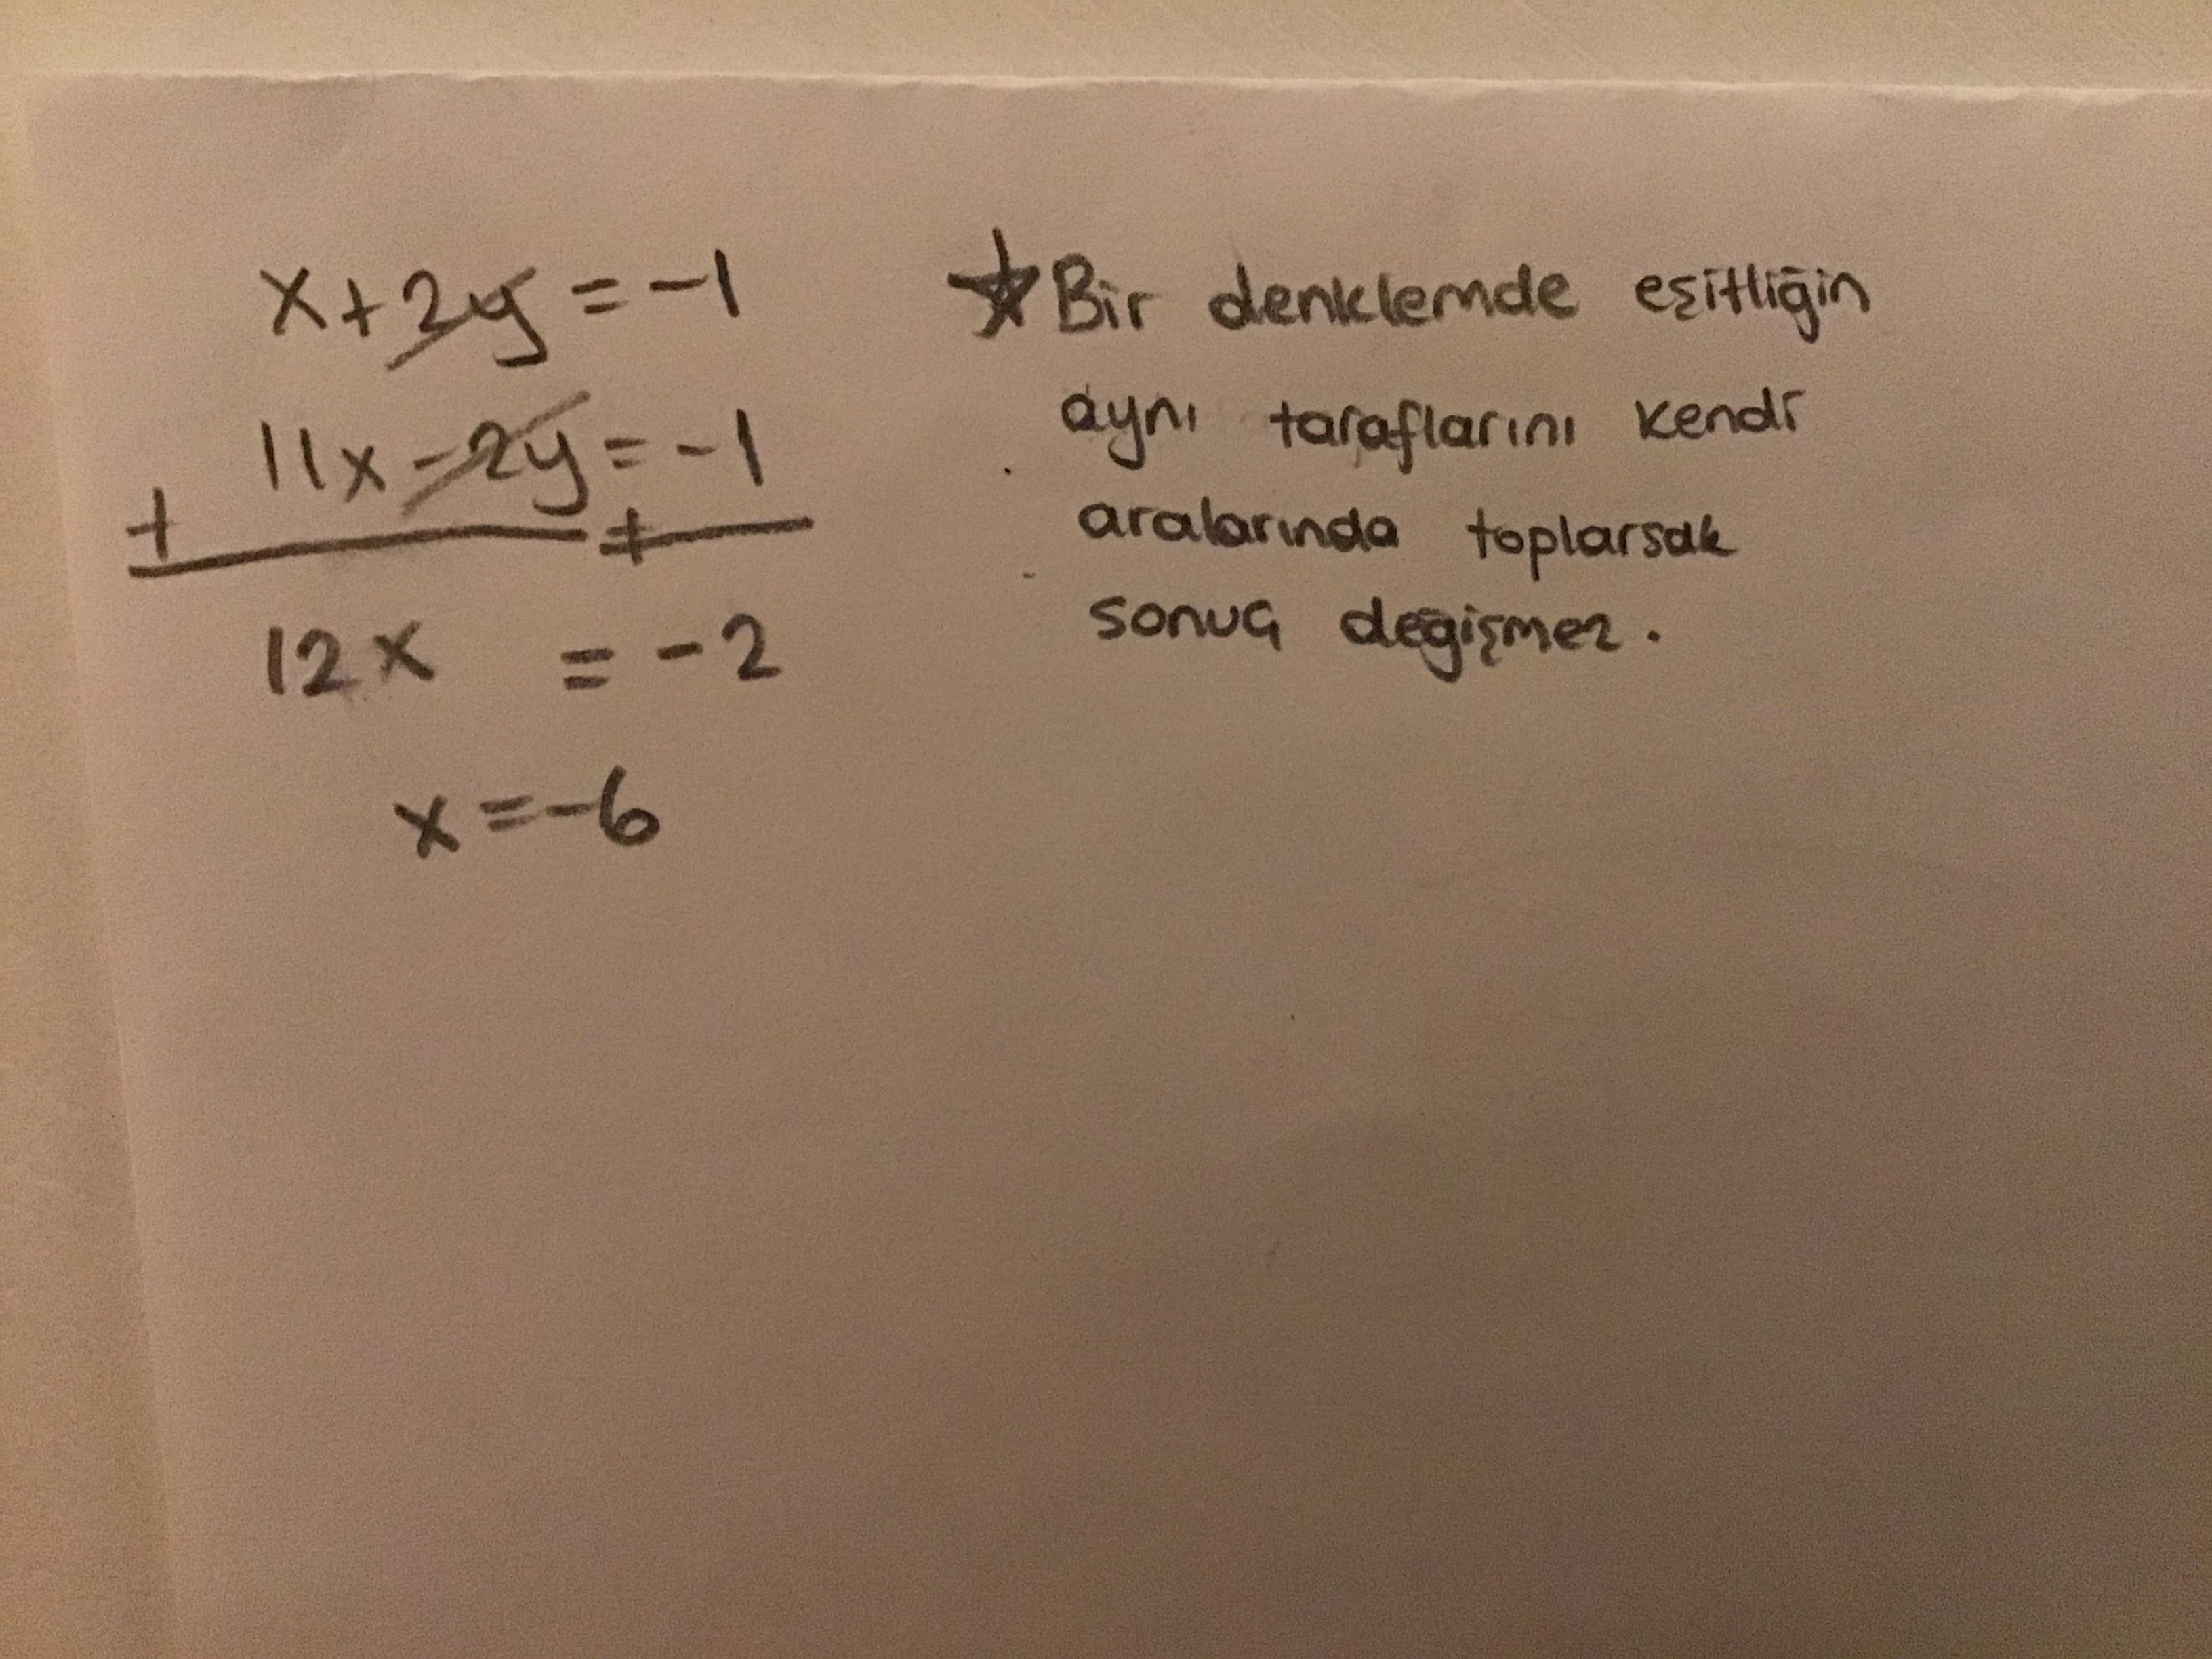 x+2y=-1
11x-2y=-1
+ +
12x = -2
x=-6
★Bir denklemde eşitliğin
aynı taraflarını kendi
aralarında toplarsak
sonuç değişmez.